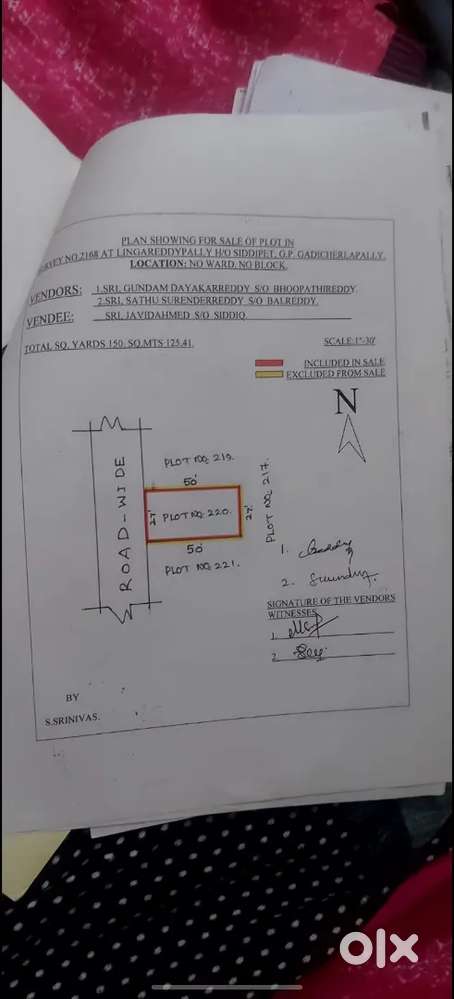 PLAN SHOWING FOR SALE OF PLOT IN
SURVEY NO.2168 AT LINGAREDDYPALLY H/O SIDDIPET, G.P. GADICHERLAPALLY.
LOCATION: NO WARD, NO BLOCK.
VENDORS: 1.SRI. GUNDAM DAYAKARREDDY S/O BHOOPATHIREDDY.
2.SRI. SATHU SURENDERREDDY S/O BALREDDY.
VENDEE: SRI. JAVIDAHMED S/O SIDDIQ.
TOTAL SQ. YARDS 150. SQ.MTS 125.41. SCALE:1"-30'
INCLUDED IN SALE
EXCLUDED FROM SALE
N
ROAD-WIDE
PLOT NO. 219.
50'
27'
PLOT NO. 220.
27'
PLOT NO. 217.
50'
PLOT NO. 221.
1.
2.
SIGNATURE OF THE VENDORS
WITNESSES
1.
2.
BY
S.SRINIVAS.
olx